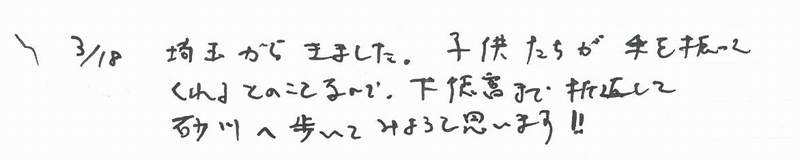 3/18 埼玉からきました。子供たちが手を振って
くれるとのことなので、下徳富まで折返して
砂川へ歩いてみようと思います!!